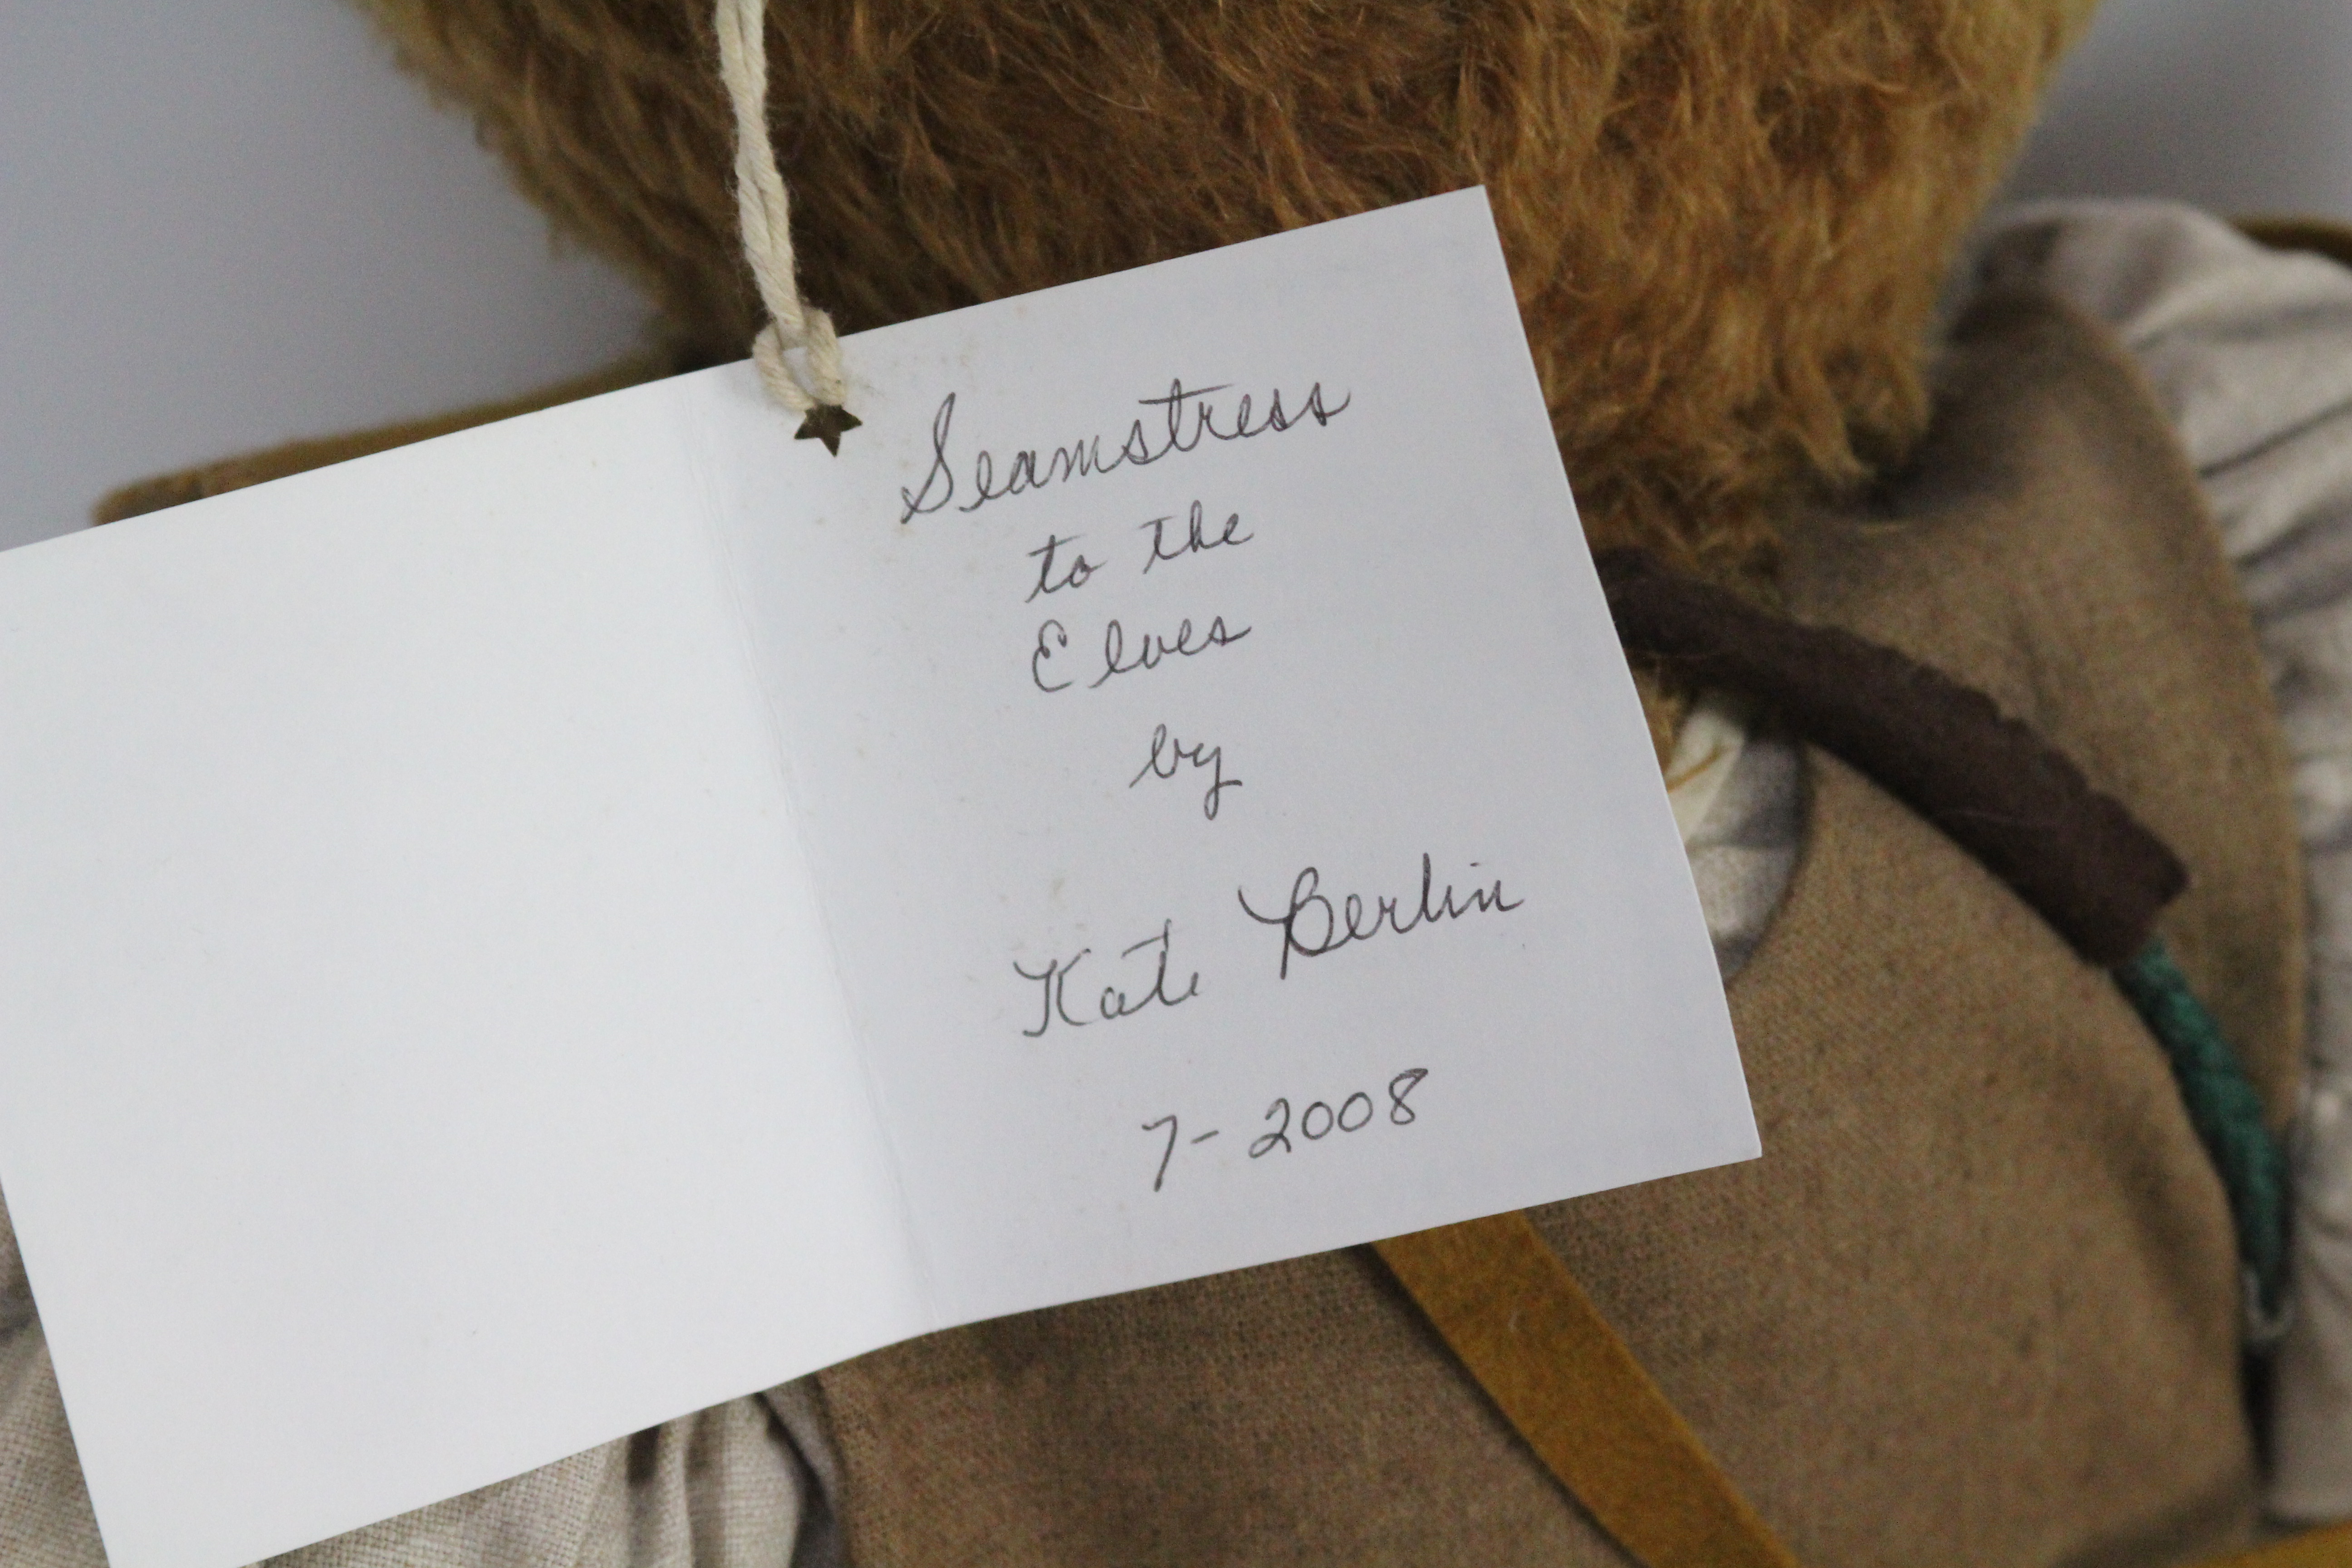 Seamstress
to the
Elves
by
Kate Berlin
7-2008